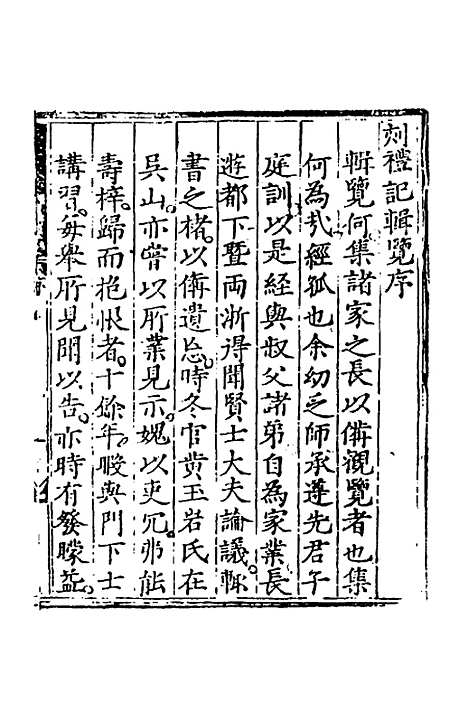 刻禮記輯覽序
輯覽何集諸家之長以俻觀覽者也集
何為㢤經孤也余幼乏師承遵先君子
庭訓以是經與叔父諸弟自為家業長
遊都下暨両浙得聞賢士大夫論議輙
書之楮以俻遺忘時冬官黄玉岩氏在
吳山亦嘗以所業見示媿以吏冗弗能
壽梓歸而抱恨者十餘年暇與門下士
講習每舉所見聞以告亦時有發矇益